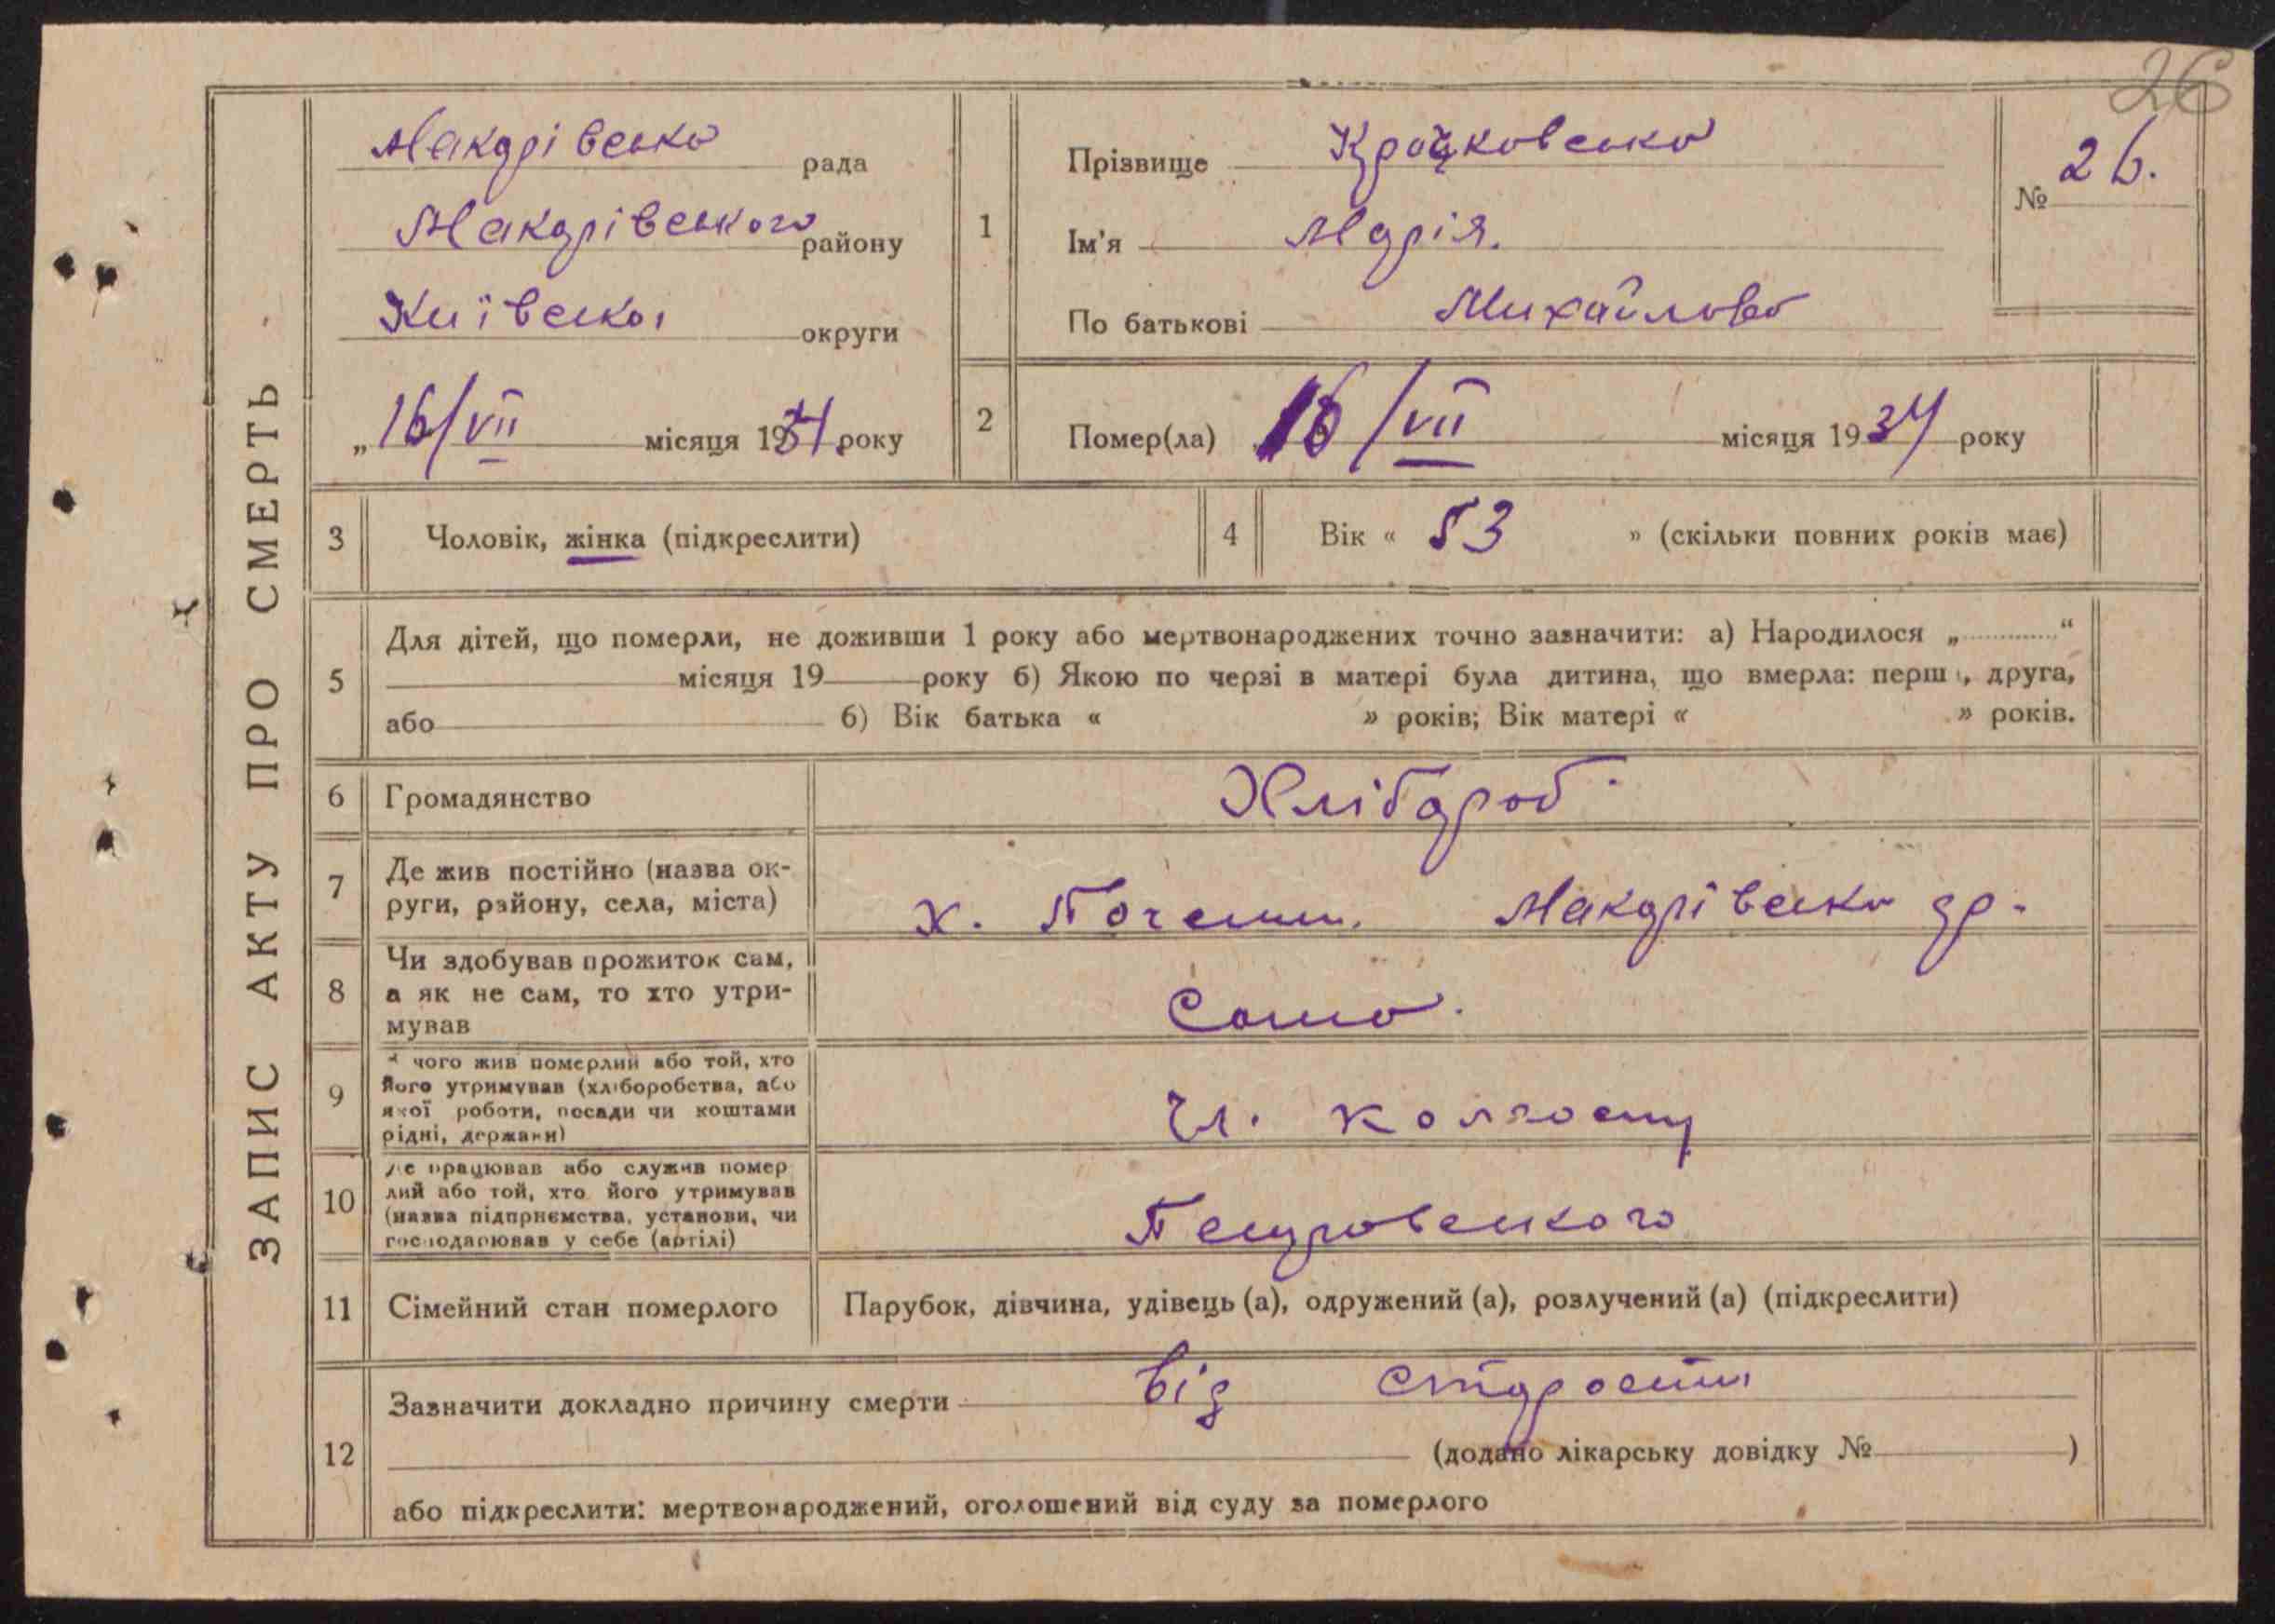 26
ЗАПИС АКТУ ПРО СМЕРТЬ
Макарівська рада
Макарівського району
Київської округи
„16/VII місяця 1934 року
1
Прізвище Крачковська
Ім'я Марія.
По батькові Михайлова
№ 26.
2
Помер(ла) 16/VII місяця 1934 року
3
Чоловік, жінка (підкреслити)
4
Вік « 53 » (скільки повних років має)
5
Для дітей, що померли, не доживши 1 року або мертвонароджених точно зазначити: а) Народилося „ “
місяця 19 року б) Якою по черзі в матері була дитина, що вмерла: перш , друга,
або б) Вік батька « » років; Вік матері « » років.
6
Громадянство
Хлібороб
7
Де жив постійно (назва ок-
руги, району, села, міста)
х. Макарівська
8
Чи здобував прожиток сам,
а як не сам, то хто утри-
мував
Сама.
9
чого жив померлий або той, хто
його утримував (хліборобства, або
якої роботи, посади чи коштами
рідні, держави)
Чл. колгоспу
10
де працював або служив помер
лий або той, хто його утримував
(назва підприємства, установи, чи
господарював у себе (артілі)
Петровського
11
Сімейний стан померлого
Парубок, дівчина, удівець (а), одружений (а), розлучений (а) (підкреслити)
12
Зазначити докладно причину смерти від старости
(додано лікарську довідку № )
або підкреслити: мертвонароджений, оголошений від суду за померлого